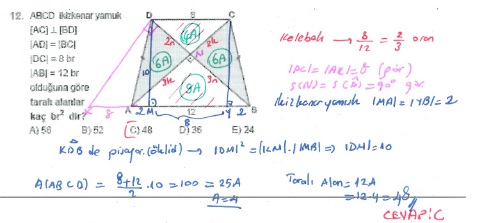 12. ABCD ikizkenar yamuk
[AC] ⊥ [BD]
|AD| = |BC|
|DC| = 8 br
|AB| = 12 br
olduğuna göre
taralı alanlar
kaç br² dir?
A) 56 B) 52 C) 48 D) 36 E) 24
D 8 C
4A
2k 2k
6A N 6A
3k 3k
10
9A
A 2 M 12 Y 2 B
8
Kelebek → 8/12 = 2/3 oran
S(N) = S(D) = 90°
İkizkenar yamuk |MA| = |YB| = 2
KDB de pisagor (öklid) → |DM|² = |KM|.|MB| ⇒ |DM| = 10
A(ABCD) = (8+12)/2 . 10 = 100 = 25A
A = 4
Taralı Alan = 12A
= 12.4 = 48
CEVAP: C